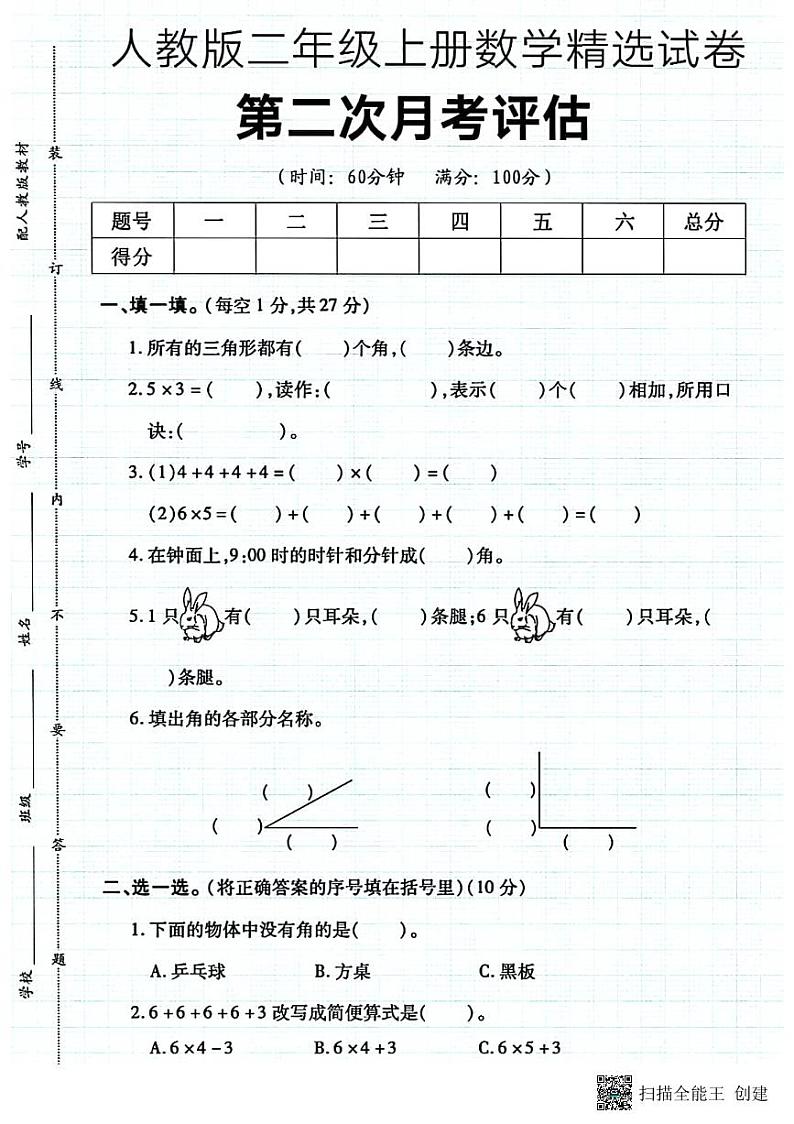 人教版二年级上册数学精选试卷
第二次月考评估
(时间: 60分钟 满分: 100分)
题号 一 二 三 四 五 六 总分
得分
一、填一填。(每空1分,共27分)
1.所有的三角形都有( )个角,( )条边。
2.5×3=( ),读作:( ),表示( )个( )相加,所用口
诀:( )。
3.(1)4+4+4+4=( )×( )=( )
(2)6×5=( )+( )+( )+( )+( )=( )
4.在钟面上,9:00时的时针和分针成( )角。
5.1只 有( )只耳朵,( )条腿;6只 有( )只耳朵,(
)条腿。
6.填出角的各部分名称。
( ) ( )
( ) ( )
( ) ( )
二、选一选。(将正确答案的序号填在括号里)(10分)
1.下面的物体中没有角的是( )。
A.乒乓球 B.方桌 C.黑板
2.6+6+6+6+3改写成简便算式是( )。
A.6×4-3 B.6×4+3 C.6×5+3
配人教版教材
学号
姓名
班级
学校
装
订
线
内
不
要
答
题
扫描全能王 创建